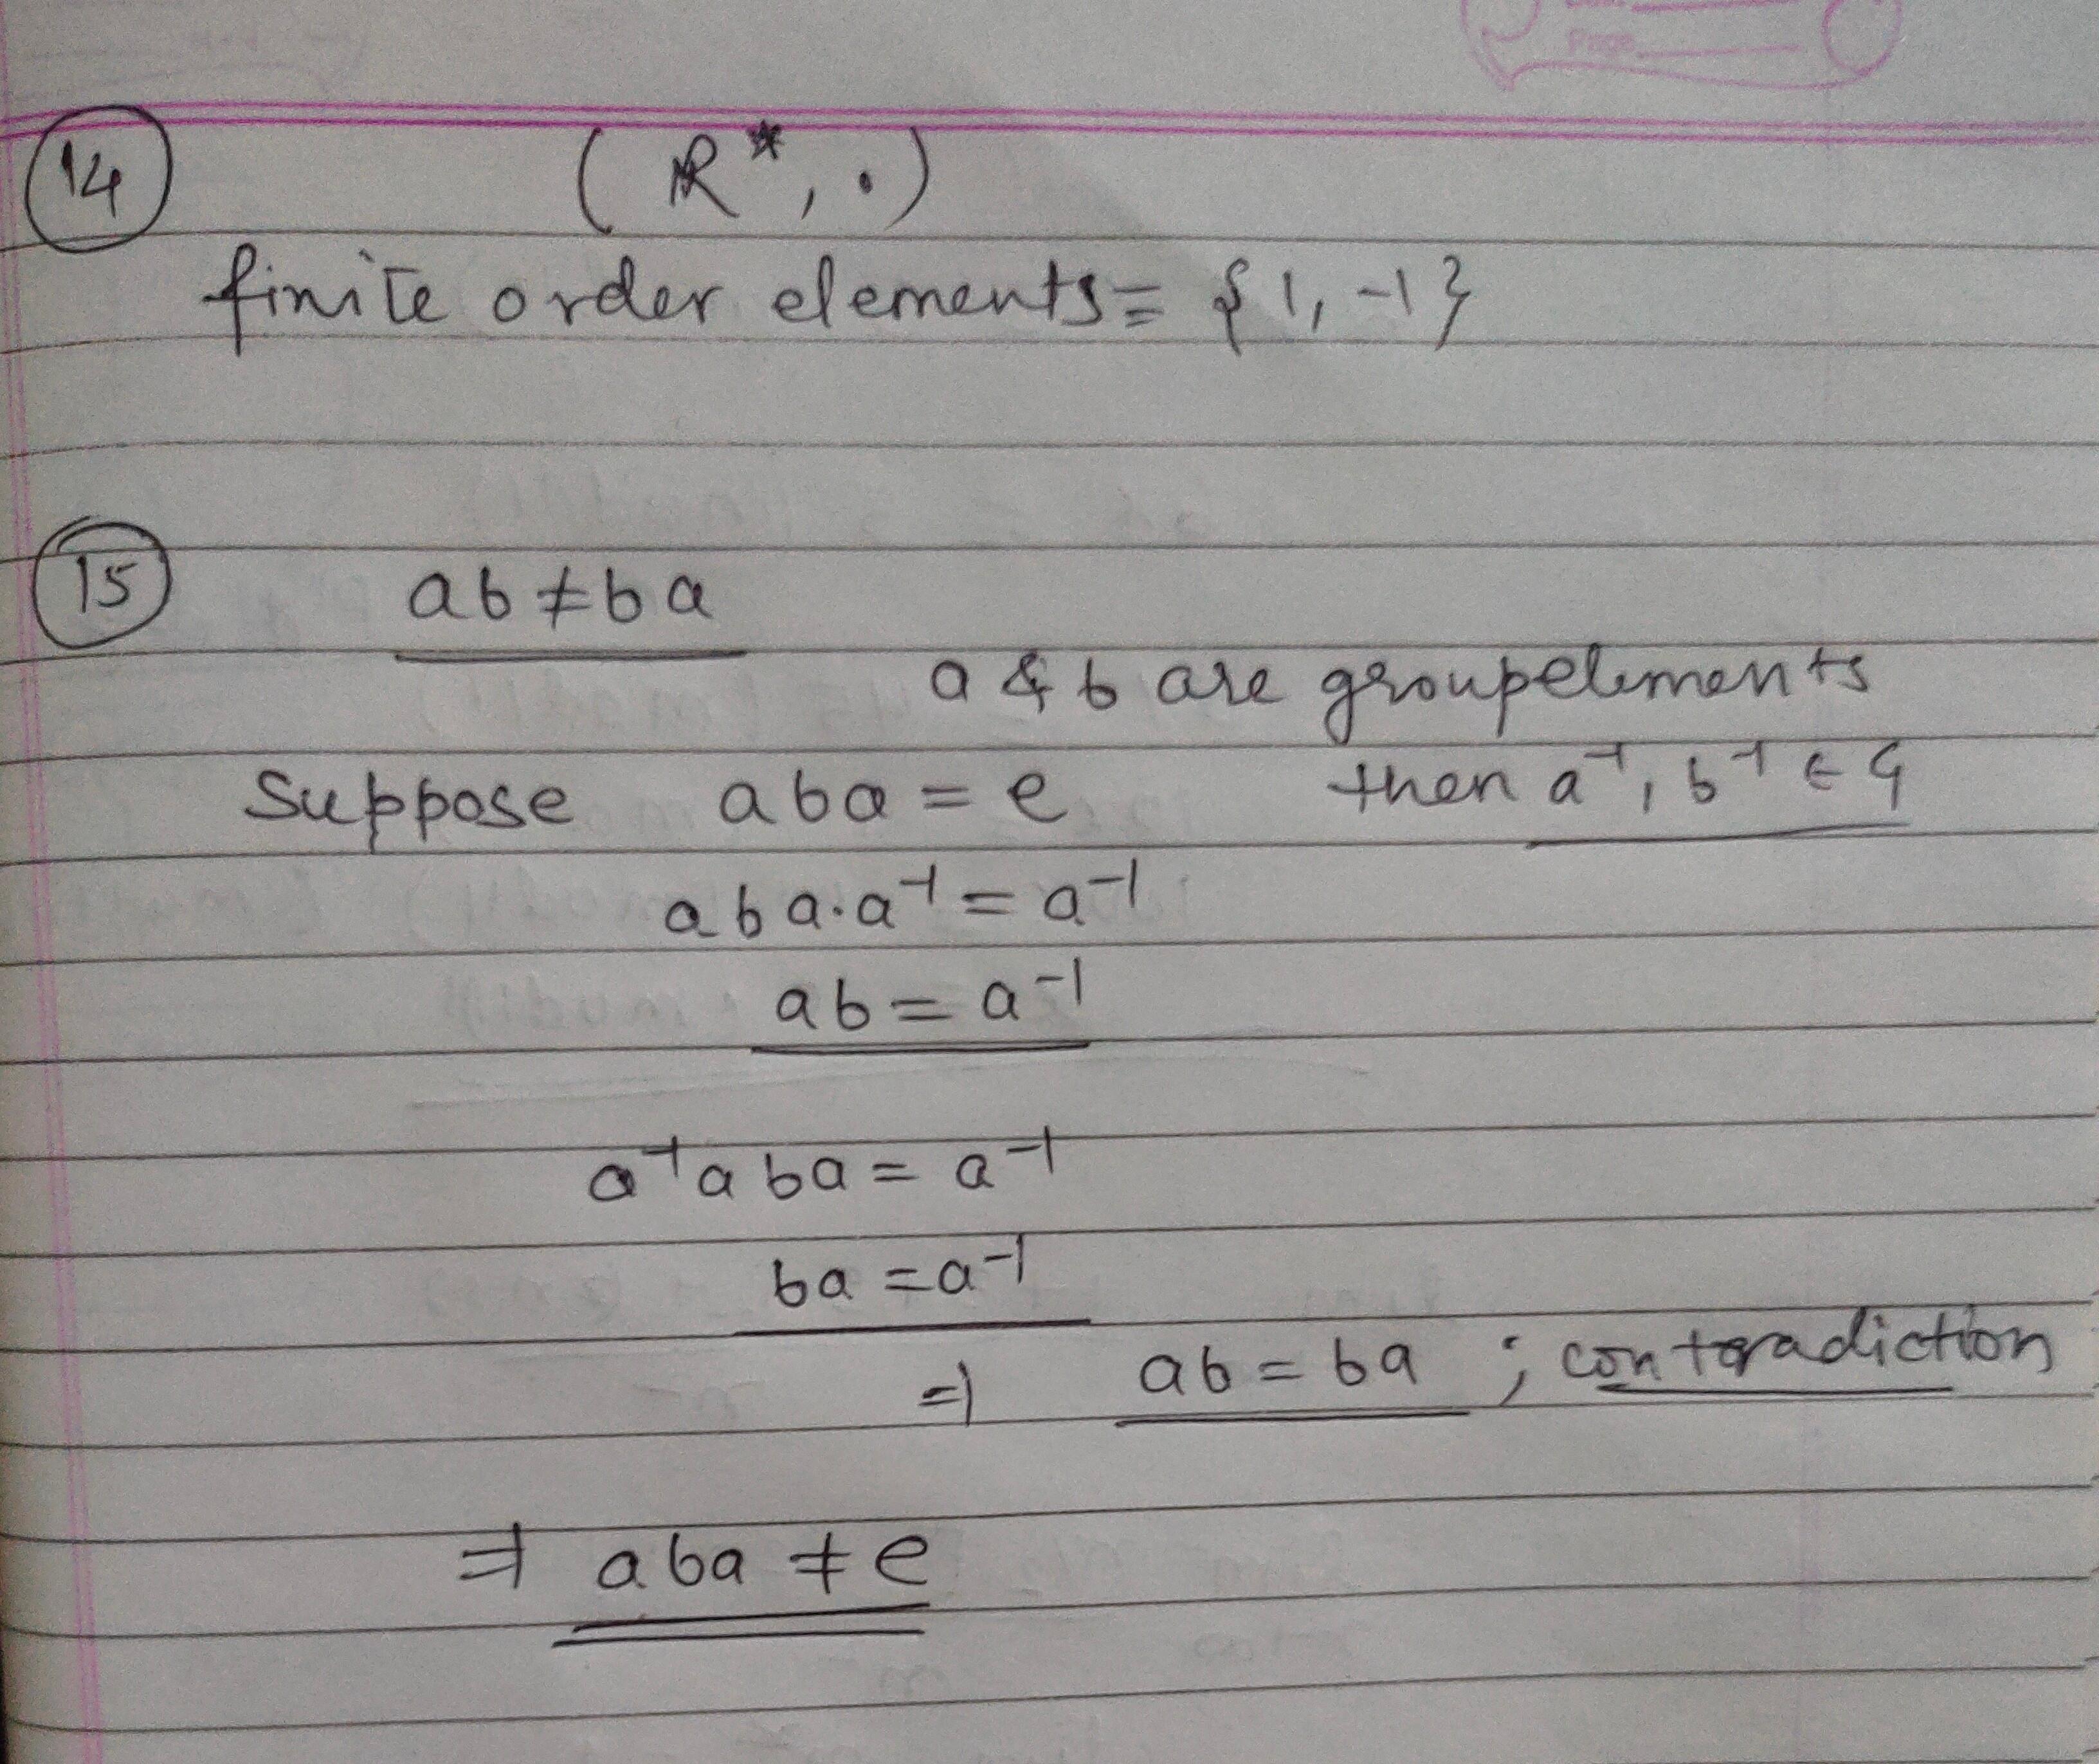 Page
14 (R*, .)
finite order elements = {1, -1}
15 ab ≠ ba
a & b are group elements
Suppose aba = e then a⁻¹, b⁻¹ ∈ G
aba.a⁻¹ = a⁻¹
ab = a⁻¹
a⁻¹aba = a⁻¹
ba = a⁻¹
⇒ ab = ba ; contradiction
⇒ aba ≠ e